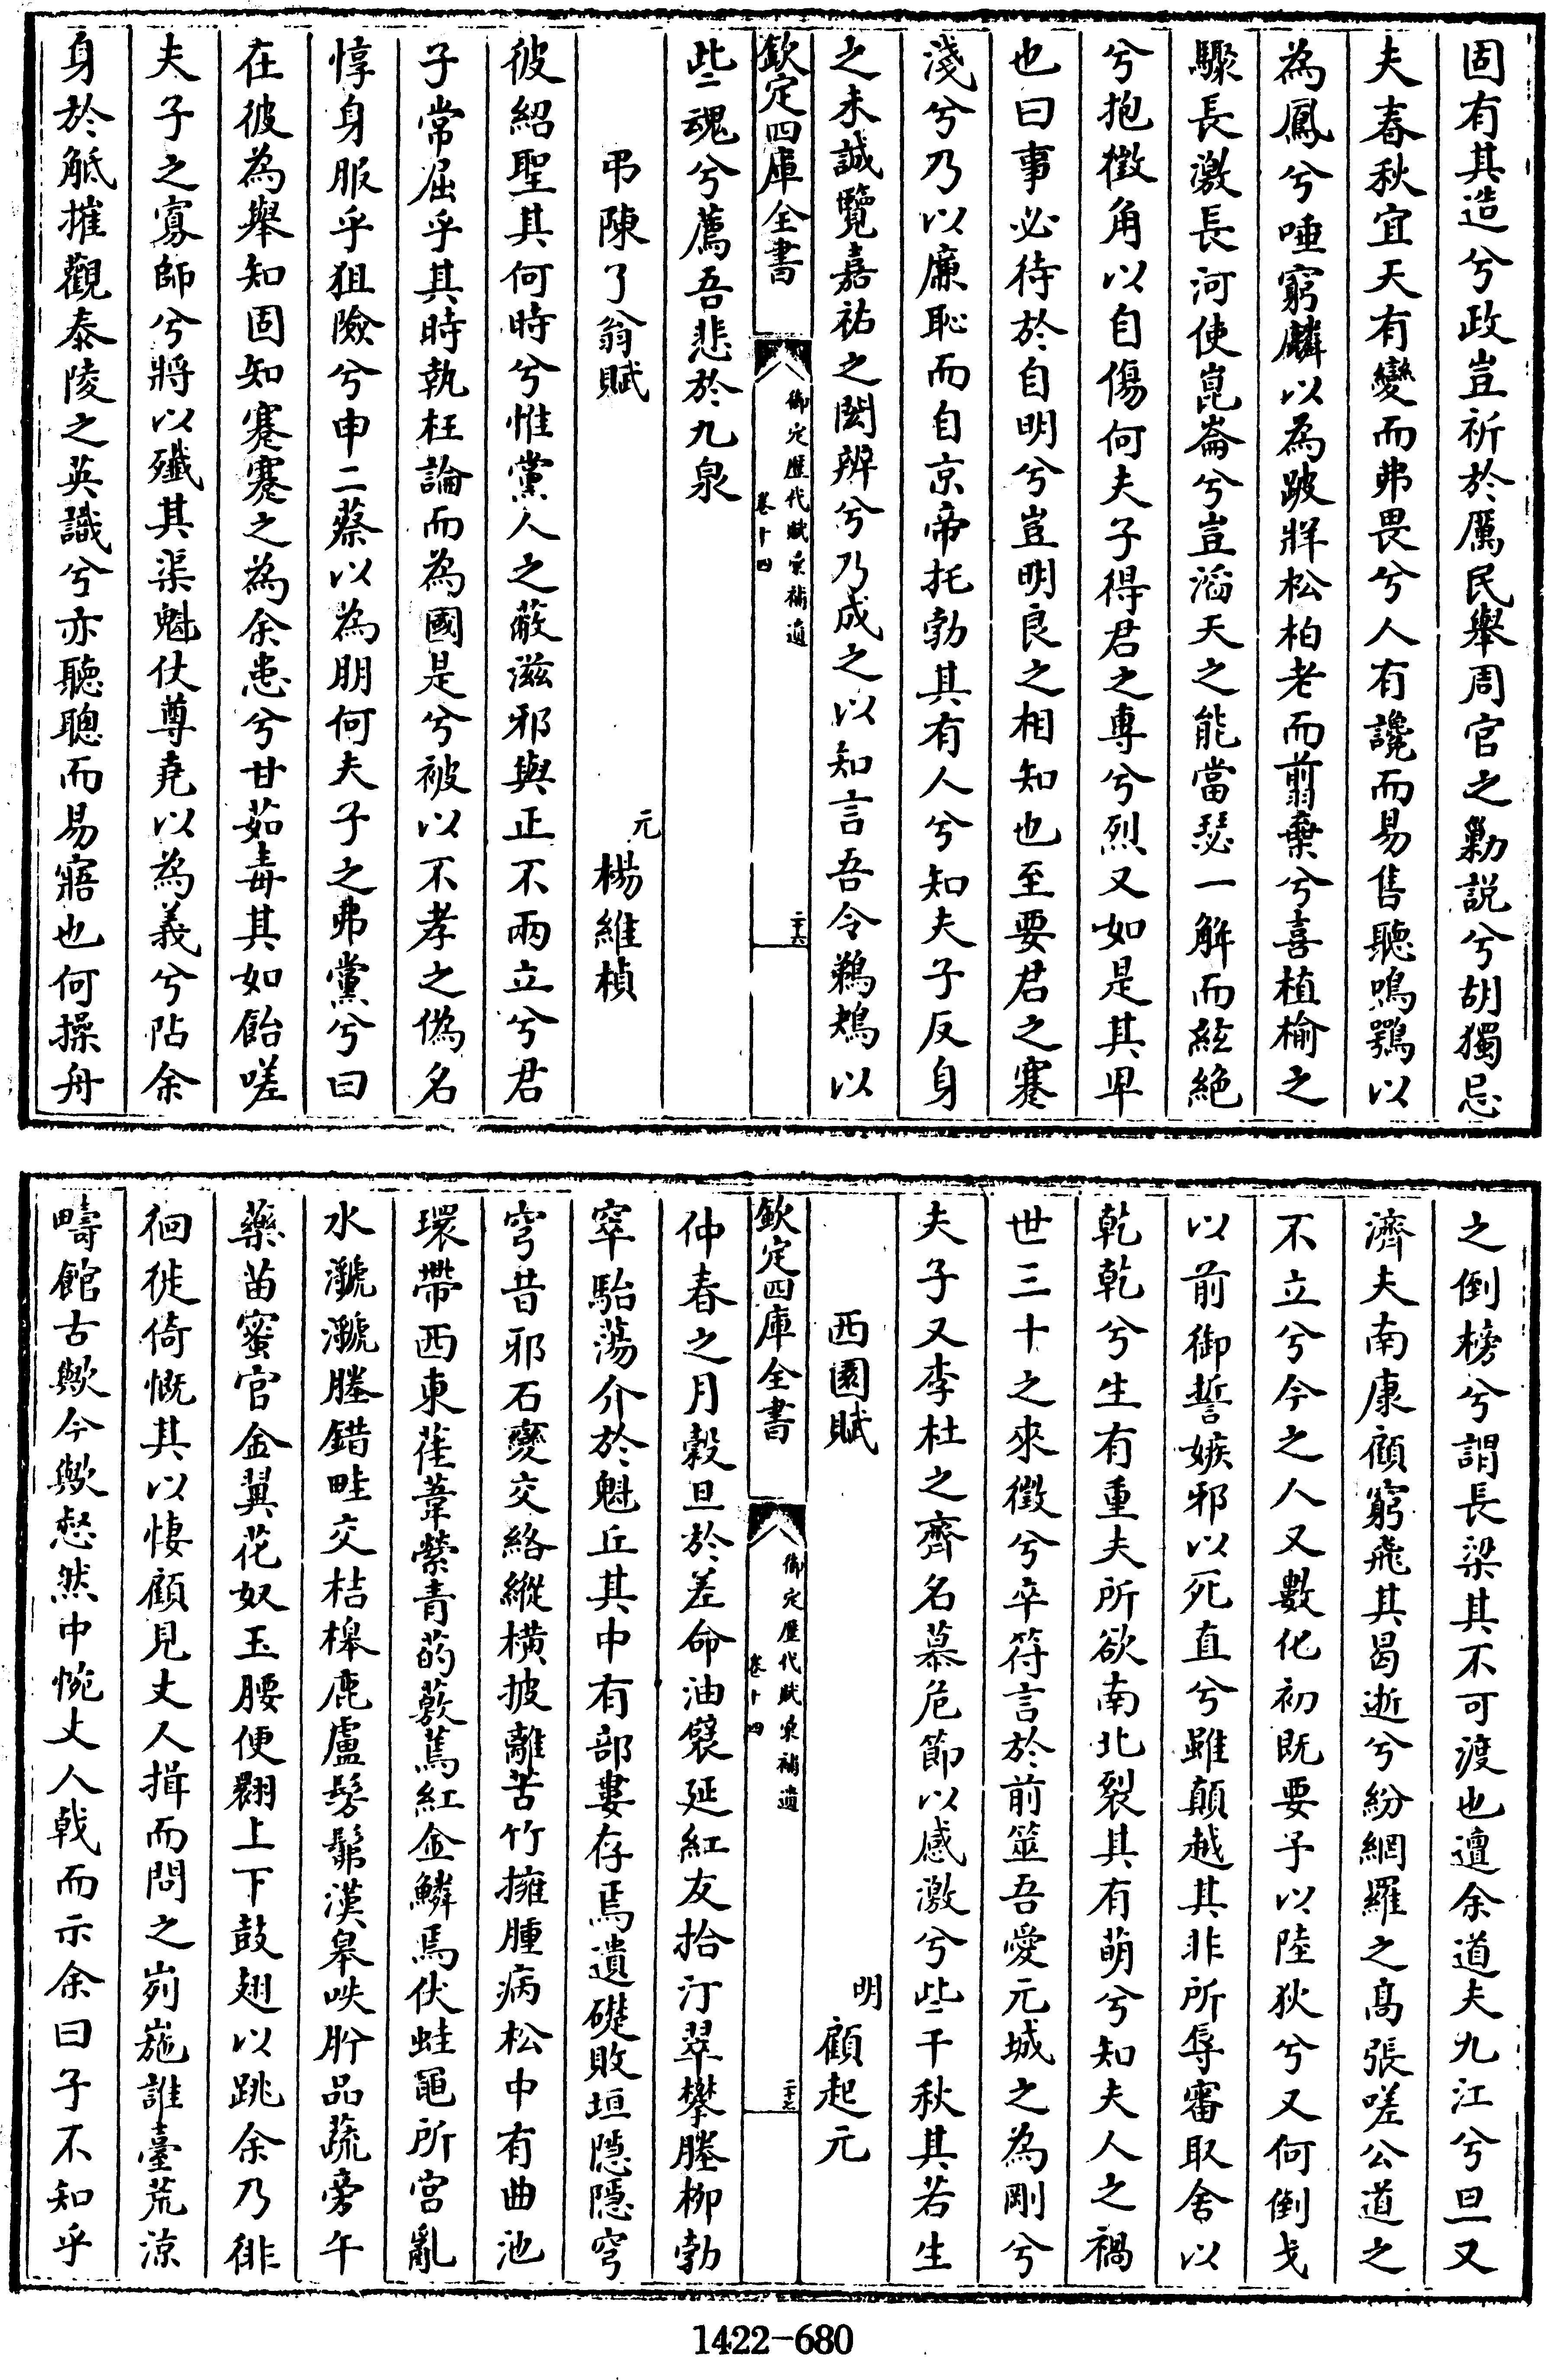 固有其造兮政豈祈於厲民舉周官之勦説兮胡獨忌
夫春秋宜天有變而弗畏兮人有讒而易售聽鳴鶚以
為鳳兮唾窮麟以為跛牂松柏老而翦棄兮喜植榆之
驟長激長河使崑崙兮豈滔天之能當瑟一解而絃絶
兮抱徵角以自傷何夫子得君之專兮烈又如是其卑
也曰事必待於自明兮豈明良之相知也至要君之蹇
淺兮乃以廉恥而自京帝托勃其有人兮知夫子反身
之未誠覽嘉祐之閎辨兮乃成之以知言吾令鵜鴂以
欽定四庫全書
御定歷代賦彙補遺
卷十四
二十六
些魂兮薦吾悲於九泉
弔陳了翁賦
元 楊維楨
彼紹聖其何時兮惟黨人之蔽滋邪與正不兩立兮君
子常屈乎其時執枉論而為國是兮被以不孝之偽名
惇身服乎狙險兮申二蔡以為朋何夫子之弗黨兮曰
在彼為舉知固知蹇蹇之為余患兮甘茹毒其如飴嗟
夫子之寡師兮將以殲其渠魁仗尊堯以為義兮阽余
身於觝摧觀泰陵之英識兮亦聽聰而易寤也何操舟
之倒榜兮謂長梁其不可渡也邅余道夫九江兮旦又
濟夫南康顧窮飛其曷逝兮紛網羅之高張嗟公道之
不立兮今之人又數化初既要予以陸狄兮又何倒戈
以前御誓嫉邪以死直兮雖顛越其非所辱審取舍以
乾乾兮生有重夫所欲南北裂其有萌兮知夫人之禍
世三十之來徵兮卒符言於前筮吾愛元城之為剛兮
夫子又李杜之齊名慕危節以感激兮些千秋其若生
西園賦
明 顧起元
欽定四庫全書
御定歷代賦彙補遺
卷十四
二十七
仲春之月穀旦於差命油䙝延紅友拾汀翠攀塍柳勃
窣駘蕩介於魁丘其中有部婁存焉遺礎敗垣隱隱穹
穹昔邪石變交絡縱横披離苦竹擁腫病松中有曲池
環帶西東萑葦縈青菂蔜蔫紅金鱗焉伏蛙黽所宮亂
水㶁㶁塍錯畦交桔槔鹿盧髣髴漢皋昳肸品蔬旁午
藥苗蜜官金翼花奴玉腰便翾上下鼓翅以跳余乃徘
徊徙倚慨其以悽顧見丈人揖而問之峛崺誰臺荒涼
疇館古歟今歟惄然中惋丈人戟而示余曰子不知乎
1422-680